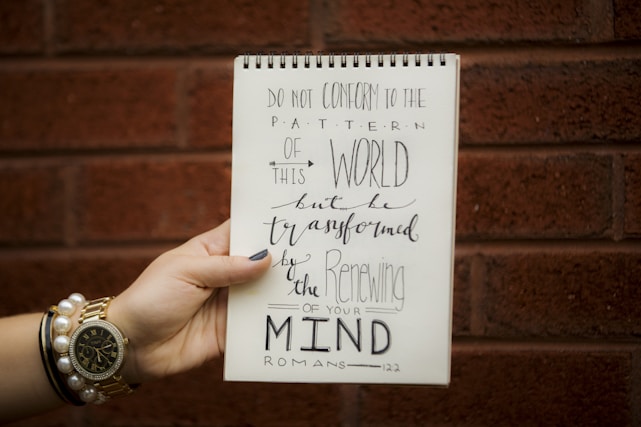 DO NOT CONFORM TO THE
P·A·T·T·E·R·N
OF
THIS WORLD
but be
transformed
by the Renewing
OF YOUR
MIND
ROMANS 12:2